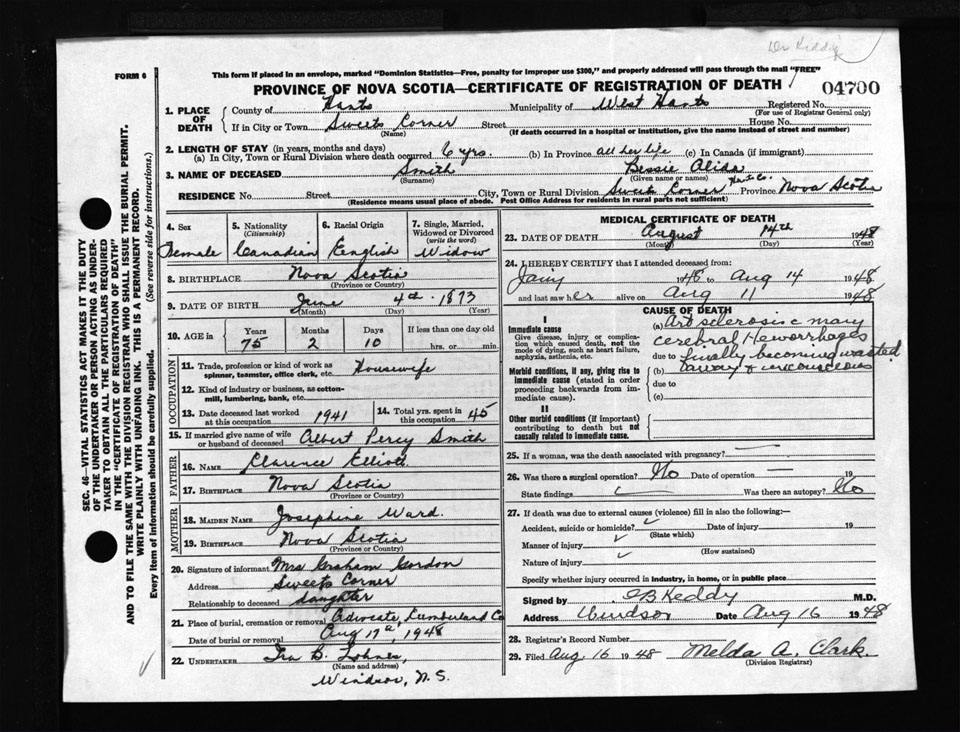 Dr Keddy
FORM 6
This form if placed in an envelope, marked "Dominion Statistics—Free, penalty for improper use $300," and properly addressed will pass through the mail "FREE"
PROVINCE OF NOVA SCOTIA—CERTIFICATE OF REGISTRATION OF DEATH
04700
1. PLACE OF DEATH
County of Hants Municipality of West Hants Registered No.
(For use of Registrar General only)
If in City or Town Sweets Corner Street House No.
(Name) (If death occurred in a hospital or institution, give the name instead of street and number)
2. LENGTH OF STAY (in years, months and days)
(a) In City, Town or Rural Division where death occurred 6 yrs. (b) In Province all her life (c) In Canada (if immigrant)
3. NAME OF DECEASED Smith Bessie
(Surname) (Given name or names)
RESIDENCE No. Street City, Town or Rural Division Sweets Corner Hants Co. Province Nova Scotia
(Residence means usual place of abode. Post Office Address for residents in rural parts not sufficient)
4. Sex Female
5. Nationality (Citizenship) Canadian
6. Racial Origin English
7. Single, Married, Widowed or Divorced (write the word) Widow
8. BIRTHPLACE Nova Scotia
(Province or Country)
9. DATE OF BIRTH June 4th 1873
(Month) (Day) (Year)
10. AGE in Years Months Days If less than one day old
75 2 10 hrs. or min.
OCCUPATION
11. Trade, profession or kind of work as spinner, teamster, office clerk, etc. Housewife
12. Kind of industry or business, as cotton-mill, lumbering, bank, etc.
13. Date deceased last worked at this occupation 1941
14. Total yrs. spent in this occupation 45
15. If married give name of wife or husband of deceased Albert Percy Smith
FATHER
16. NAME Clarence Elliott
17. BIRTHPLACE Nova Scotia
(Province or Country)
MOTHER
18. MAIDEN NAME Josephine Ward.
19. BIRTHPLACE Nova Scotia
(Province or Country)
20. Signature of informant Mrs Graham Gordon
Address Sweets Corner
Relationship to deceased daughter
21. Place of burial, cremation or removal Advocate, Cumberland Co
Date of burial or removal Aug 17th, 1948
22. UNDERTAKER Ira B. Lohnes,
(Name and address)
Windsor, N.S.
MEDICAL CERTIFICATE OF DEATH
23. DATE OF DEATH August 14th 1948
(Month) (Day) (Year)
24. I HEREBY CERTIFY that I attended deceased from:
1948 to Aug 14 1948
and last saw her alive on Aug 11 1948
CAUSE OF DEATH
I
Immediate cause
Give disease, injury or complication which caused death, not the mode of dying, such as heart failure, asphyxia, asthenia, etc.
Morbid conditions, if any, giving rise to immediate cause (stated in order proceeding backwards from immediate).
II
Other morbid conditions (if important) contributing to death but not causally related to immediate cause.
(a) Art sclerosis c many
cerebral Hemorrhages
due to finally becoming wasted
(b) away & unconscious
due to
(c)
25. If a woman, was the death associated with pregnancy? —
26. Was there a surgical operation? No Date of operation — 19
State findings Was there an autopsy? No
27. If death was due to external causes (violence) fill in also the following:—
Accident, suicide or homicide? Date of injury 19
(State which)
Manner of injury
(How sustained)
Nature of injury
Specify whether injury occurred in industry, in home, or in public place
Signed by E B Keddy M.D.
Address Windsor Date Aug 16 1948
28. Registrar's Record Number
29. Filed Aug. 16 1948 Melda A. Clark.
(Division Registrar)
SEC. 46—VITAL STATISTICS ACT MAKES IT THE DUTY
OF THE UNDERTAKER OR PERSON ACTING AS UNDER-
TAKER TO OBTAIN ALL THE PARTICULARS REQUIRED
IN THE "CERTIFICATE OF REGISTRATION OF DEATH"
AND TO FILE THE SAME WITH THE DIVISION REGISTRAR WHO SHALL ISSUE THE BURIAL PERMIT.
WRITE PLAINLY WITH UNFADING INK. THIS IS A PERMANENT RECORD.
Every item of information should be carefully supplied. (See reverse side for instructions.)